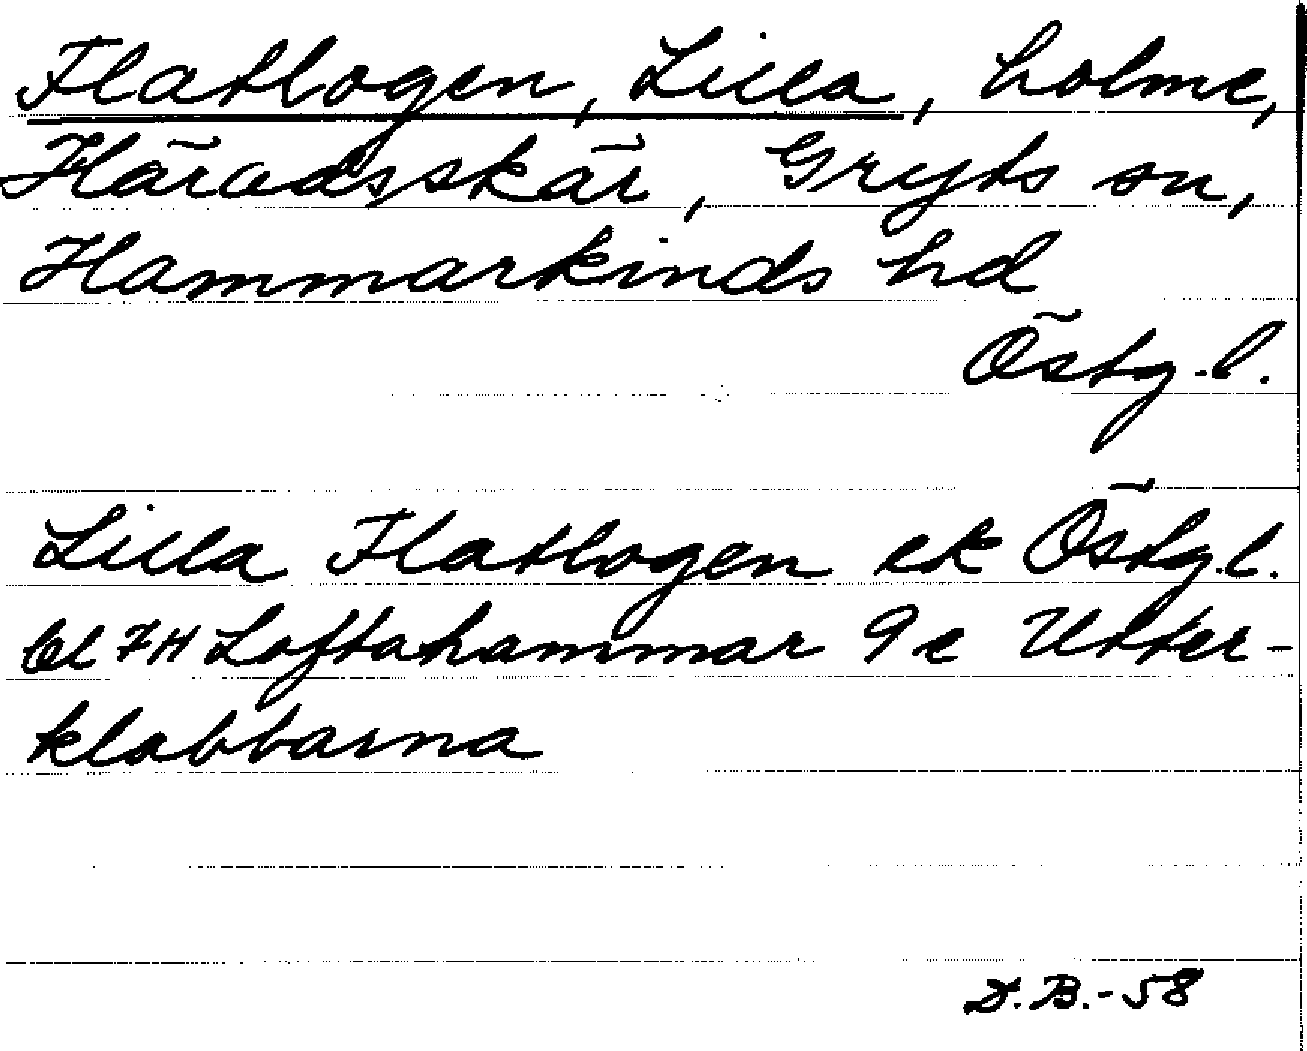 Flathogen, Lilla, holme,
Häradsskär, Gryts sn,
Hammarkinds hd
Östg.l.
Lilla Flathogen ek Östg.l.
bl 7H Loftahammar 9e Utter-
klabbarna
D.B.-58